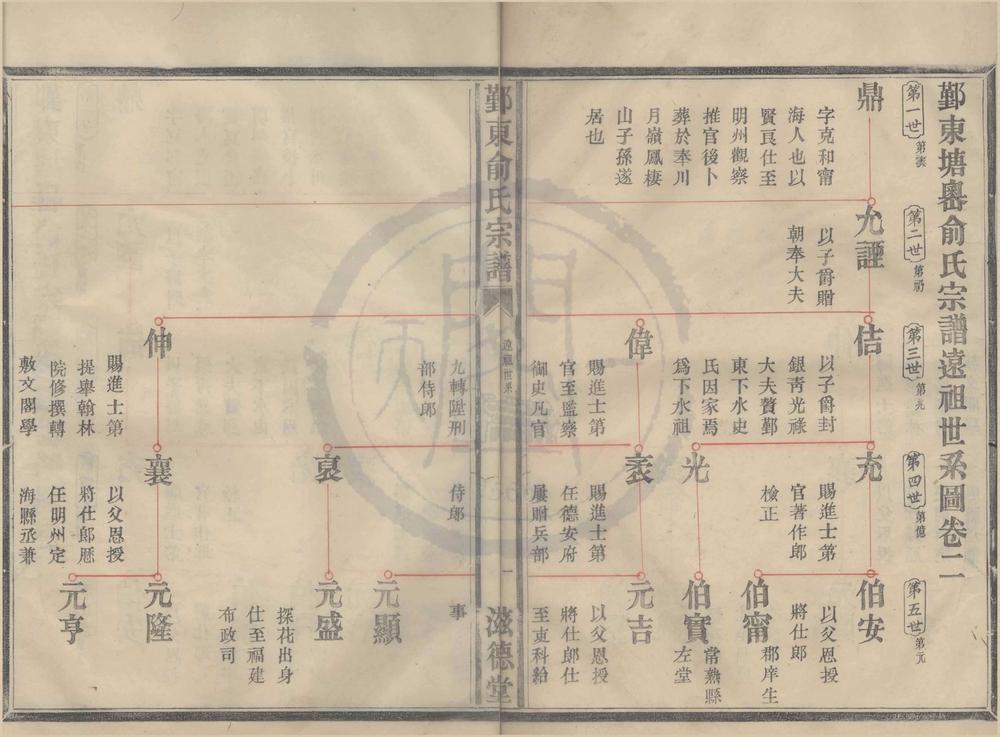 鄞東塘嶴俞氏宗譜遠祖世系圖卷二
第一世
第二世
第三世
第四世
第五世
第元
鼎
字克和甯
海人也以
賢良仕至
明州觀察
推官後卜
葬於奉川
月嶺鳳棲
山子孫遂
居也
允諲
以子爵贈
朝奉大夫
佶
以子爵封
銀青光祿
大夫贅鄞
東下水史
氏因家焉
為下水祖
充
賜進士第
官著作郎
檢正
伯安
以父恩授
將仕郎
伯甯
郡庠生
光
伯實
常熟縣
左堂
偉
賜進士第
官至監察
御史凡官
九轉陞刑
部侍郎
袤
賜進士第
任德安府
屢贈兵部
侍郎
元吉
以父恩授
將仕郎仕
至吏科給
事
元顯
裒
元盛
探花出身
仕至福建
布政司
伸
賜進士第
提舉翰林
院修撰轉
敷文閣學
襄
以父恩授
將仕郎厯
任明州定
海縣丞兼
元隆
元亨
鄞東俞氏宗譜
遠祖世系
一
滋德堂